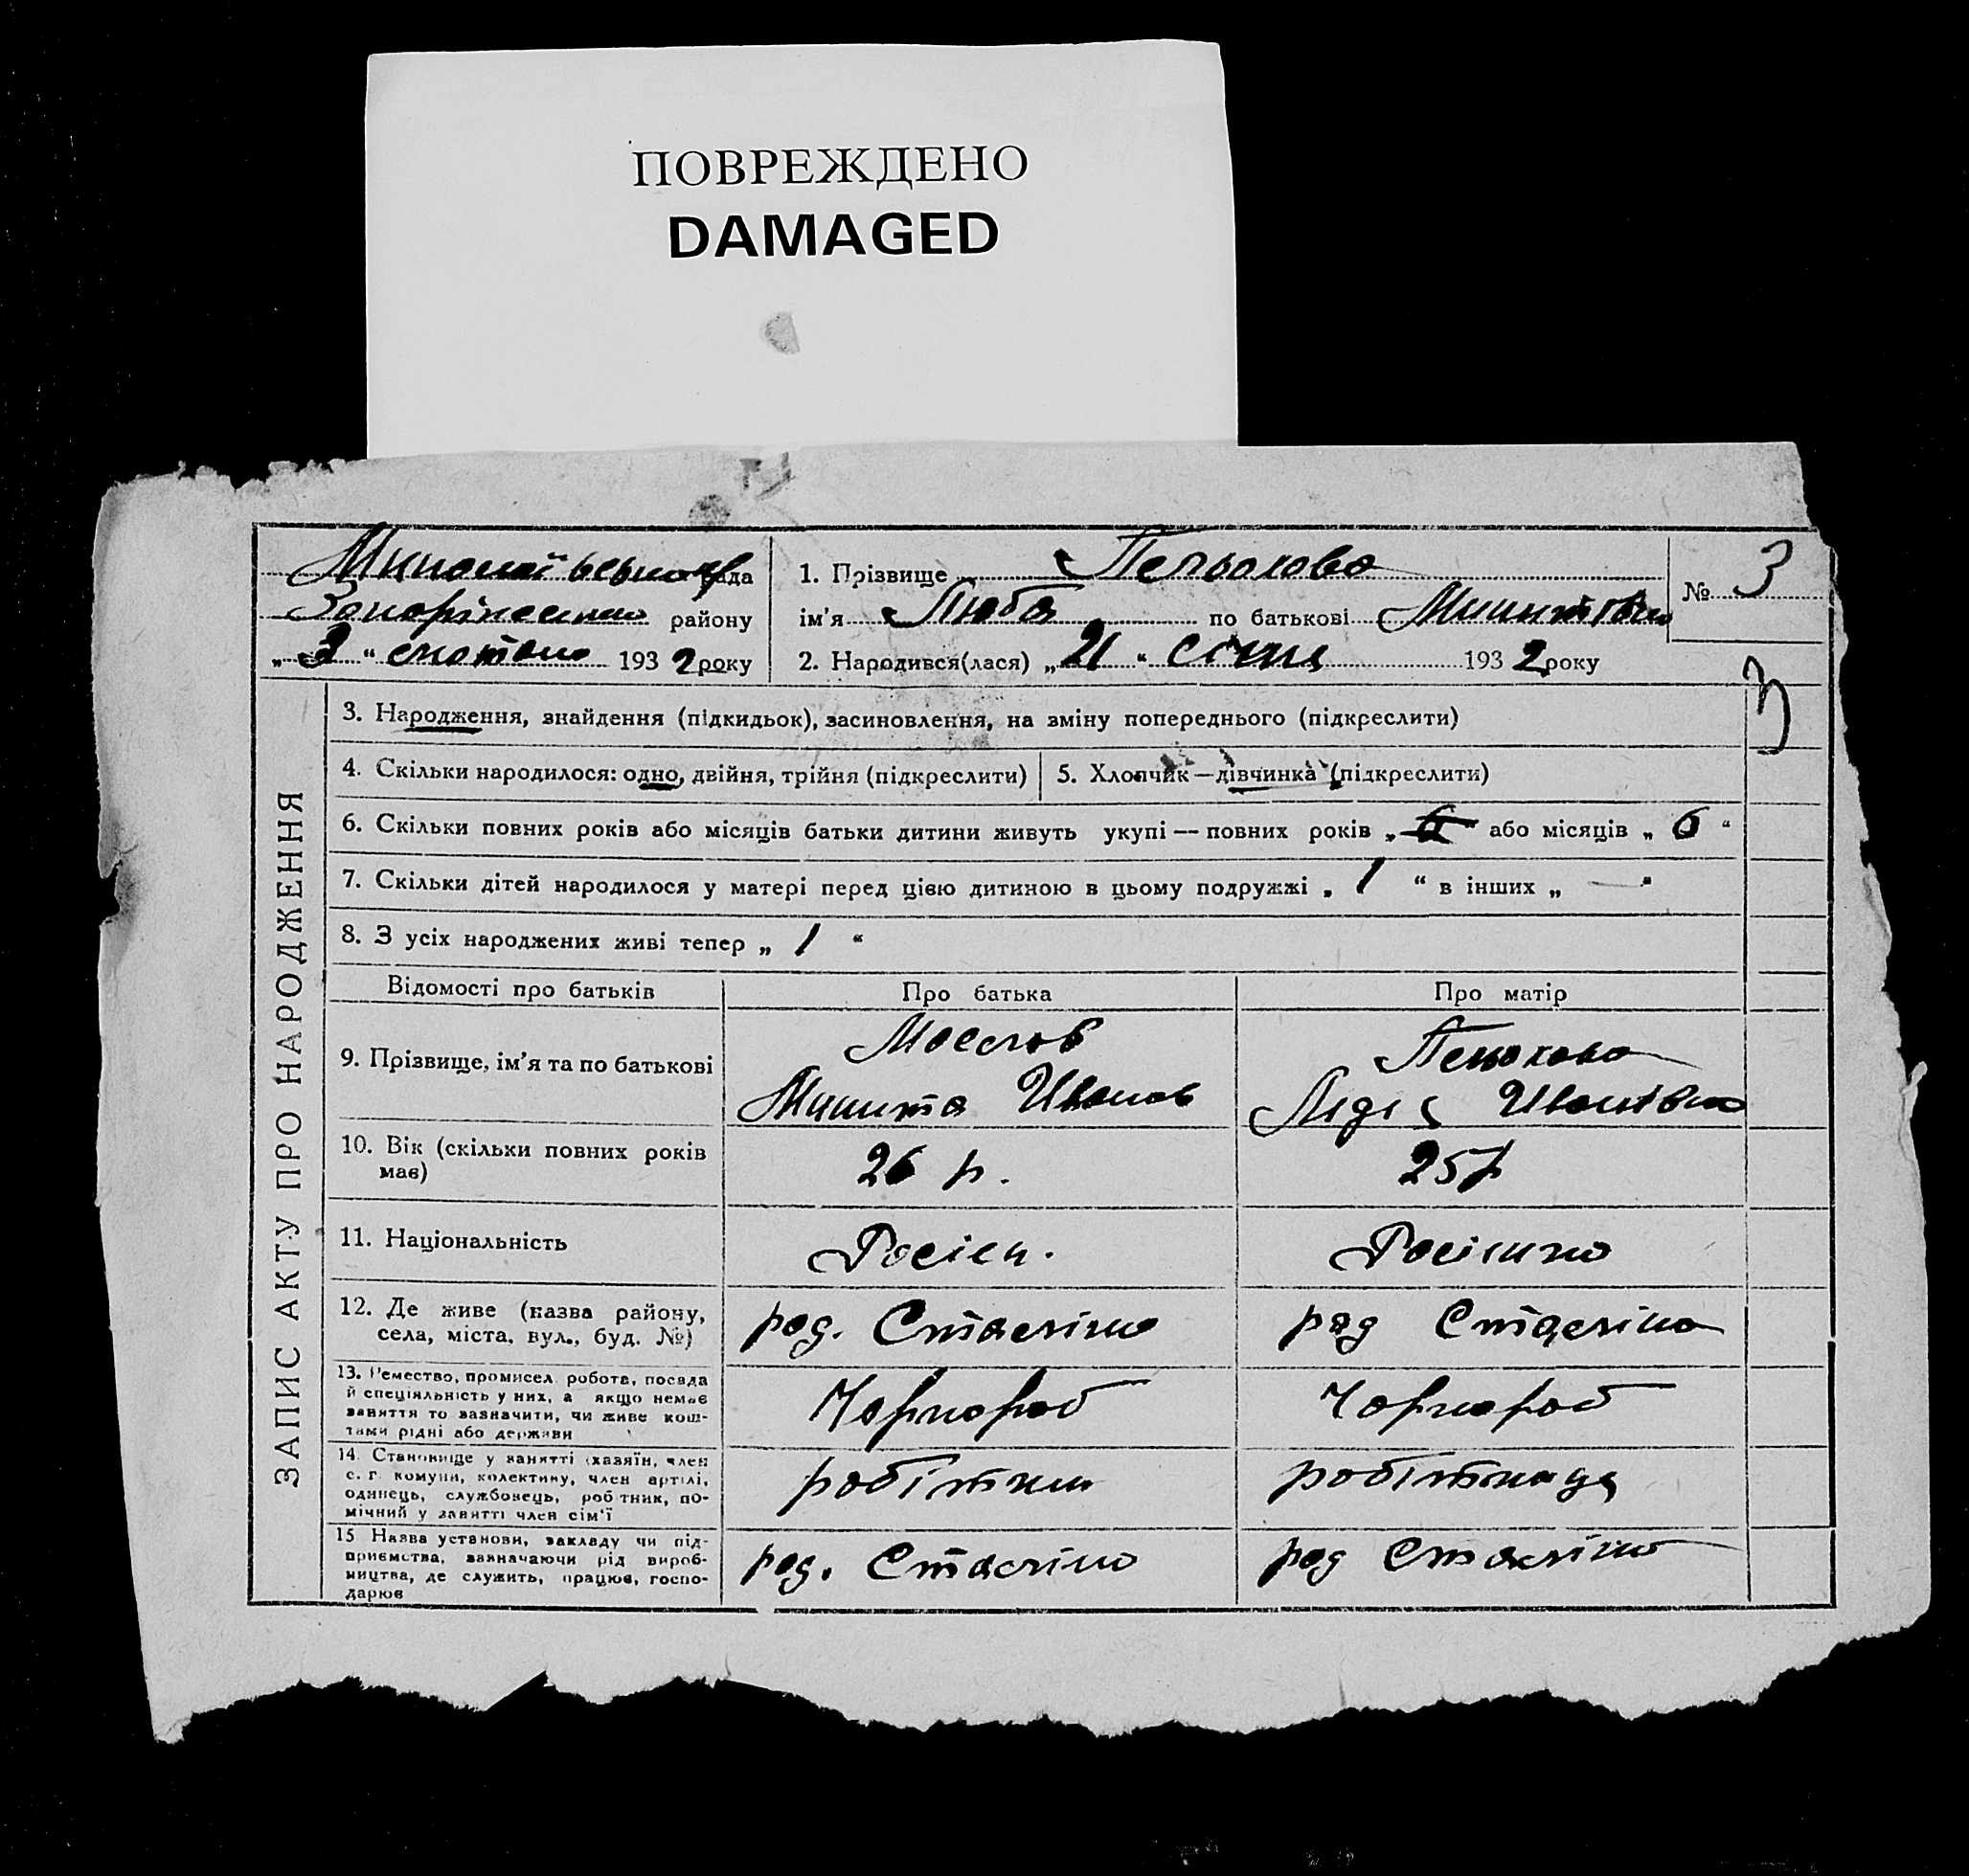 ПОВРЕЖДЕНО
DAMAGED
Миколаївська рада
Запорізького району
„ 3 “ лютого 1932 року
1. Прізвище Пельохова
ім'я Люба по батькові Микитівна
2. Народився(лася) „ 21 “ січня 1932 року
№ 3
3
ЗАПИС АКТУ ПРО НАРОДЖЕННЯ
3. Народження, знайдення (підкидьок), засиновлення, на зміну попереднього (підкреслити)
4. Скільки народилося: одно, двійня, трійня (підкреслити)
5. Хлопчик—дівчинка (підкреслити)
6. Скільки повних років або місяців батьки дитини живуть укупі — повних років „ 6 “ або місяців „ 6 “
7. Скільки дітей народилося у матері перед цією дитиною в цьому подружжі „ 1 “ в інших „ — “
8. З усіх народжених живі тепер „ 1 “
Відомості про батьків
Про батька
Про матір
9. Прізвище, ім'я та по батькові
Маслов
Микита Иванов
Пельохова
Лідія Иванівна
10. Вік (скільки повних років
має)
26 р.
25 р
11. Національність
Росіян.
Росіянка
12. Де живе (назва району,
села, міста, вул., буд. №)
рад. Сталіна
рад Сталіна
13. Ремество, промисел, робота, посада
й спеціяльність у них, а якщо немає
заняття то зазначити, чи живе кош-
тами рідні або держави
Чорнороб
Чорнороб
14. Становище у занятті (хазяїн, член
с. г. комуни, колективу, член артілі,
одинець, службовець, робітник, по-
мічний у занятті член сім'ї
робітник
робітниця
15 Назва установи, закладу чи під-
приємства, зазначаючи рід вироб-
ництва, де служить, працює, госпо-
дарює
рад. Сталіна
рад Сталіна